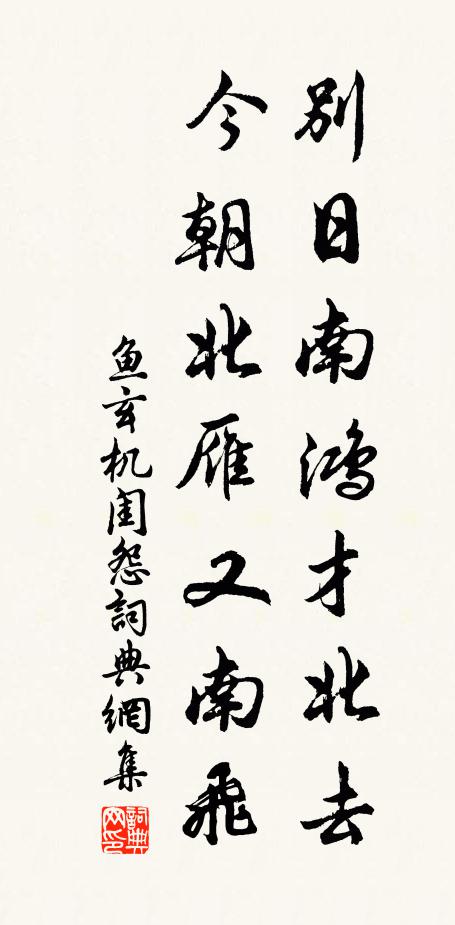 别日南鸿才北去
今朝北雁又南飛
鱼玄机闺怨詞典網集
詞典网印